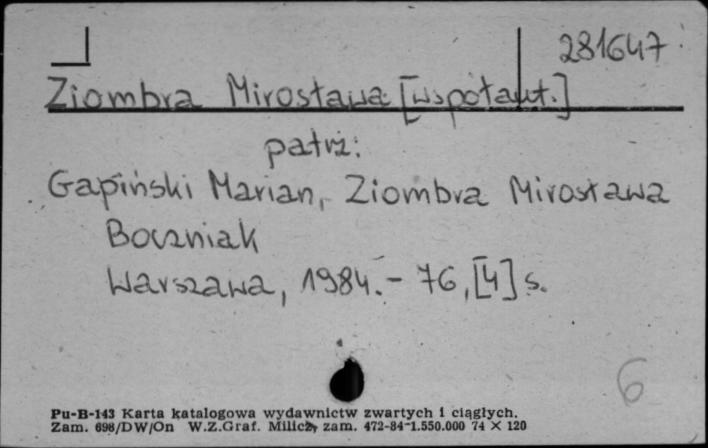 281647
Ziombra Mirosława [współaut.]
patrz:
Gapiński Marian, Ziombra Mirosława
Boczniak
Warszawa, 1984.- 76, [4] s.
6
Pu-B-143 Karta katalogowa wydawnictw zwartych i ciągłych.
Zam. 698/DW/On W.Z.Graf. Milicz, zam. 472-84-1.550.000 74 X 120